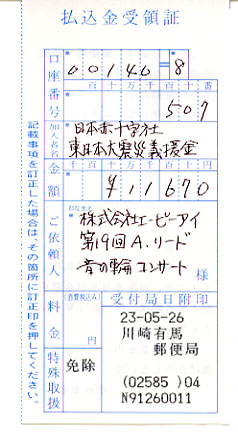 払込金受領証
口座番号 百 十 万 千 百 十 番
00140=8
千 百 十 万 千 百 十 番
507
加入者名 日本赤十字社
東日本大震災義援金
金額 千 百 十 万 千 百 十 円
¥11670
ご依頼人 おなまえ
株式会社エーピーアイ
第19回A.リード
音の輪コンサート 様
料金 (消費税込み) 円
特殊取扱 免除
受付局日附印
23-05-26
川崎有馬
郵便局
(02585 )04
N91260011
記載事項を訂正した場合は、その箇所に訂正印を押してください。